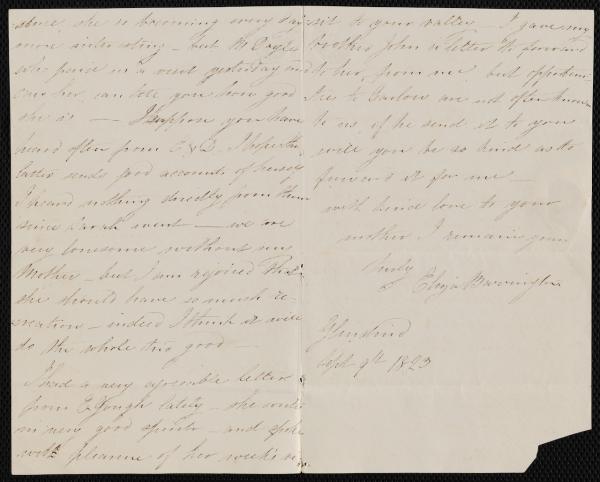 since, she is becoming every day
more interesting - but M. Doyle
who paid us a visit yesterday and
can tell you how good
she is — I suppose you have
heard often from E & D. I hope the
latter sends good accounts of herself
I heard nothing directly from them
since Sarah went — we are
very lonesome without my
Mother - but I am rejoiced that
she should have so much re-
creation - indeed I think it will
do the whole trio good -
I had a very agreeable letter
from E Gough lately - she
in very good spirits - and spoke
with pleasure of her week's vi-
sit to your valley - I gave my
brother John a letter to forward
to her, from me, but opportuni-
ties to Carlow are not often known
to us, if he send it to you
will you be so kind as to
forward it for me -
with kind love to your
mother I remain yours
truly
Eliza Barrington
Glendruid
Sept 9th 1823